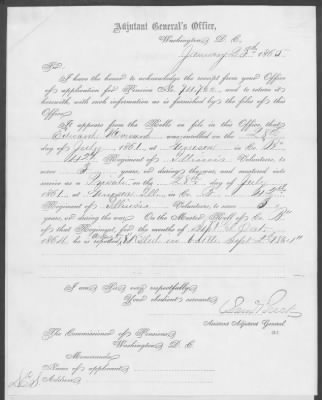 Adjutant General's Office,
Washington, D. C.
January 23th 1865
Sir:
I have the honor to acknowledge the receipt from your Office
of application for Pension No. and to return it
herewith, with such information as is furnished by the files of this
Office.
It appears from the Rolls on file in this Office, that
Edward was enrolled on the 28th
day of July 1861 at in Co. "B"
42d Regiment of Illinois Volunteers, to serve
3 years, or during the war, and mustered into
service as a Private on the 28th day of July
1861 at Ill. in Co. B 42d
Regiment of Illinois Volunteers, to serve 3
years, or during the war. On the Muster Roll of Co. "B"
of that Regiment, for the months of Sept & Oct
1864 he is reported Killed in battle Sept 2d 1864"
I am Sir very respectfully,
Your obedient servant,
Assistant Adjutant General.
The Commissioner of Pensions,
Washington, D. C.
Memoranda
Name of applicant
Address